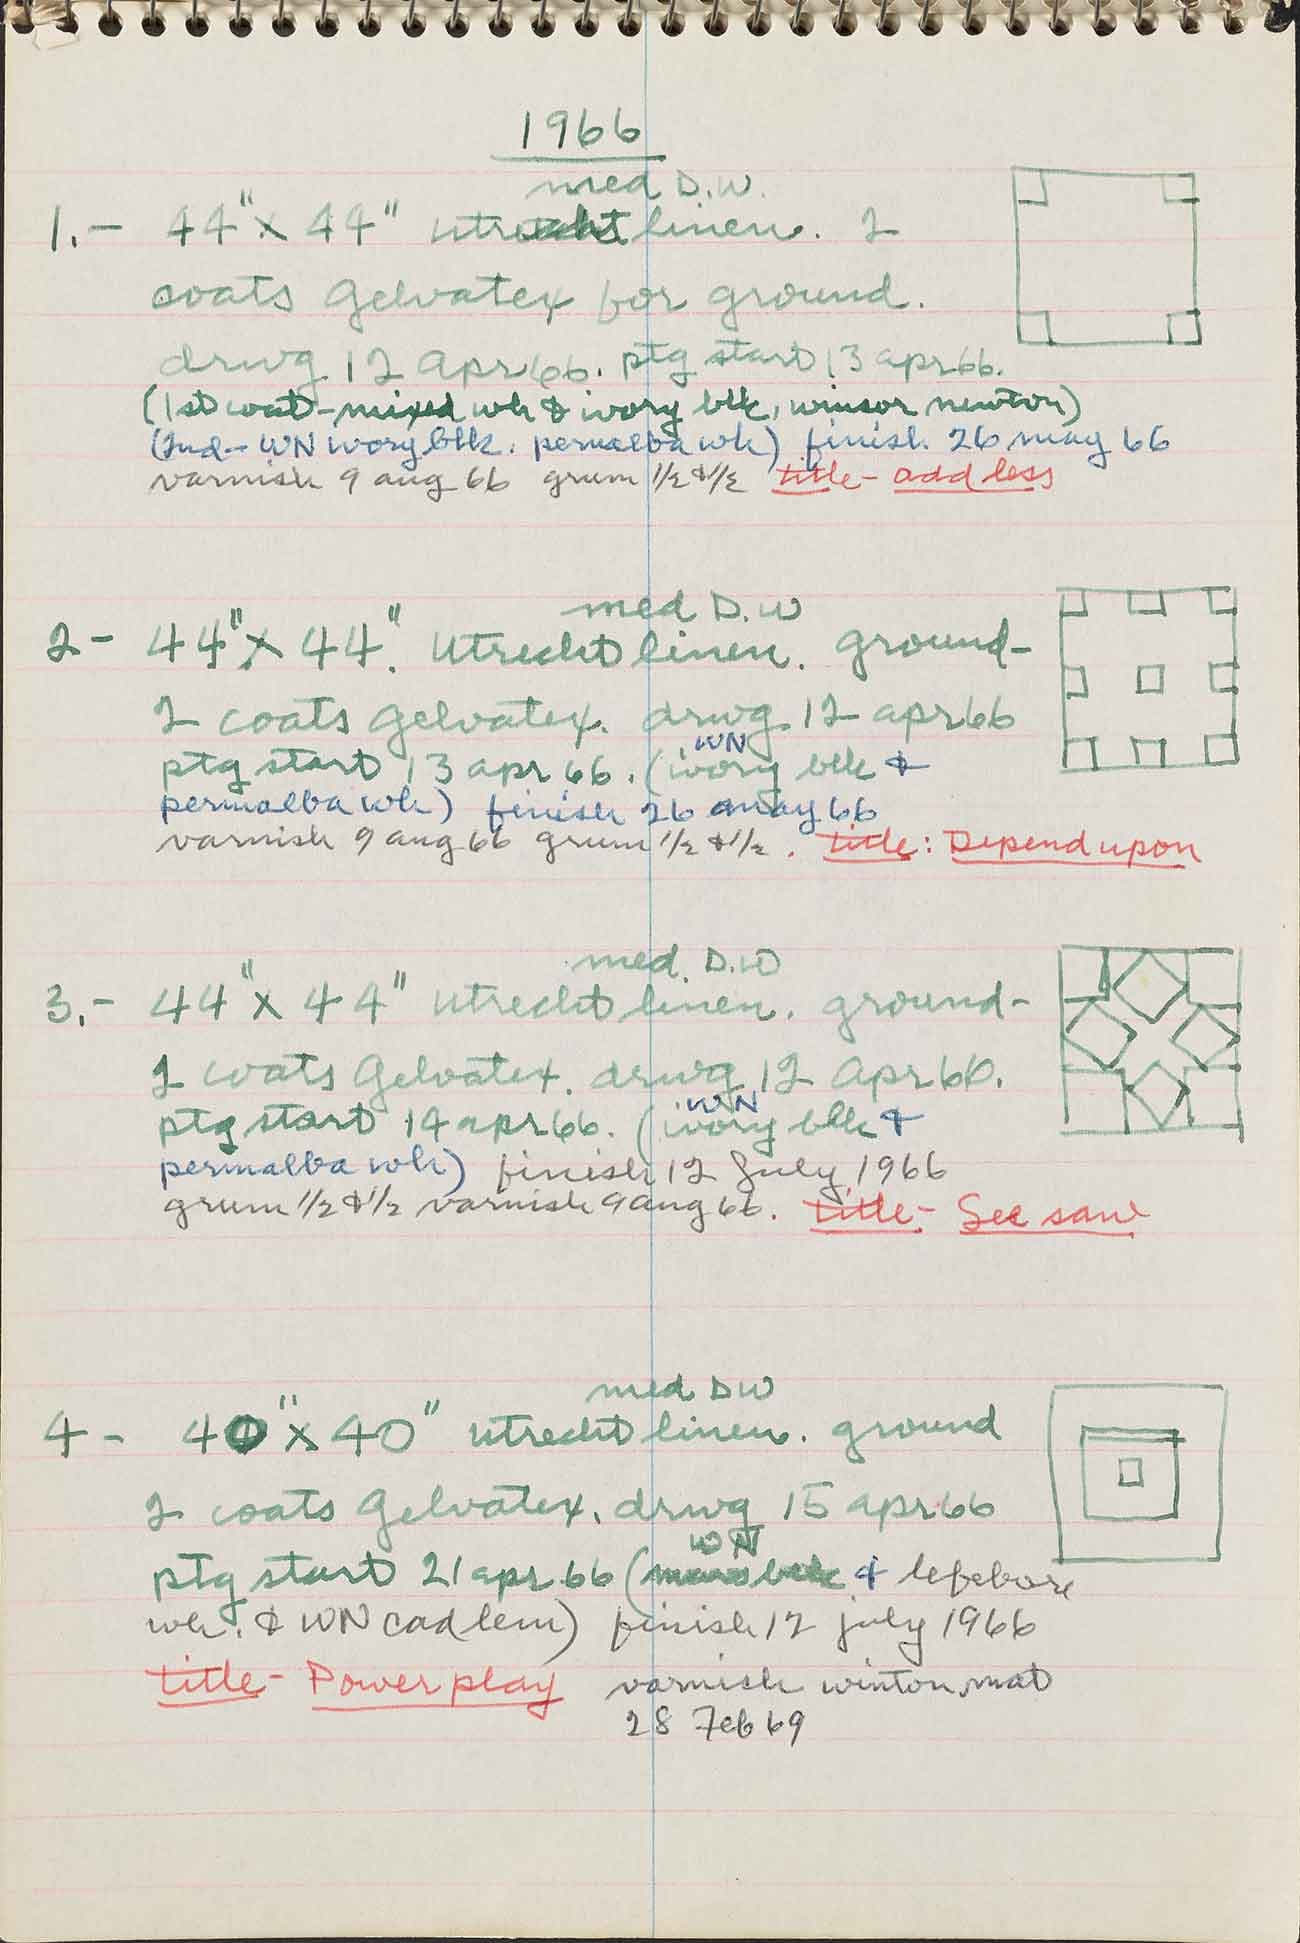 1966
med D.W.
1.- 44" x 44" Utrecht linen. 2
coats Gelvatex for ground.
drwg 12 Apr 66. ptg start 13 apr 66.
(1st coat - mixed wh & ivory blk, winsor newton)
(2nd - WN ivory blk. permalba wh) finish 26 may 66
varnish 9 aug 66 grum 1/2 & 1/2 title - add less
med D.W
2 - 44" x 44". Utrecht linen. ground -
2 coats Gelvatex. drwg 12 apr 66
WN
ptg start 13 apr 66. (ivory blk &
permalba wh) finish 26 may 66
varnish 9 aug 66 grum 1/2 & 1/2. title: Depend upon
med. D.W
3.- 44" x 44" Utrecht linen. ground -
2 coats Gelvatex. drwg 12 Apr 66.
WN
ptg start 14 apr 66. (ivory blk &
permalba wh) finish 12 July 1966
grum 1/2 & 1/2 varnish 9 aug 66. title - See saw
med DW
4 - 40" x 40" Utrecht linen. ground
2 coats Gelvatex. drwg 15 apr 66
WN
ptg start 21 apr 66 (mars blk & lefebvre
wh. & WN cad lem) finish 12 july 1966
title - Power play varnish winton mat
28 Feb 69